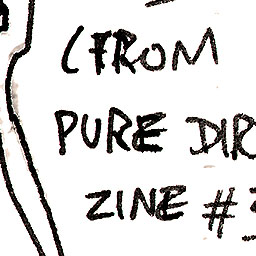 (FROM
PURE DIR
ZINE #